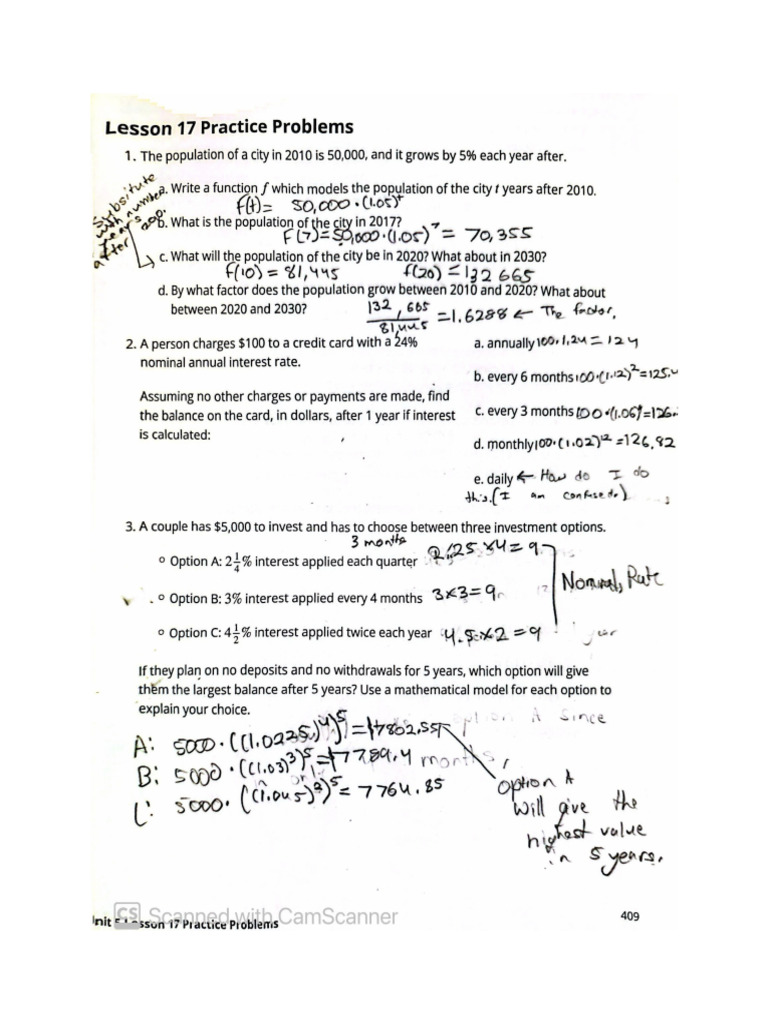 Lesson 17 Practice Problems
1. The population of a city in 2010 is 50,000, and it grows by 5% each year after.
Subsitute with number years after
a. Write a function f which models the population of the city t years after 2010.
f(t) = 50,000 · (1.05)^t
b. What is the population of the city in 2017?
F(7) = 50,000 · (1.05)^7 = 70,355
c. What will the population of the city be in 2020? What about in 2030?
f(10) = 81,445 f(20) = 132 665
d. By what factor does the population grow between 2010 and 2020? What about
between 2020 and 2030? 132,665 / 81,445 = 1.6288 ← The factor.
2. A person charges $100 to a credit card with a 24%
nominal annual interest rate.
Assuming no other charges or payments are made, find
the balance on the card, in dollars, after 1 year if interest
is calculated:
a. annually 100 · 1.24 = 124
b. every 6 months 100 · (1.12)^2 = 125.4
c. every 3 months 100 · (1.06)^4 = 126.
d. monthly 100 · (1.02)^12 = 126.82
e. daily ← How do I do
this. (I am confused.)
3. A couple has $5,000 to invest and has to choose between three investment options.
3 months
Option A: 2 1/4 % interest applied each quarter 2.25 x 4 = 9
Option B: 3% interest applied every 4 months 3 x 3 = 9
Nominal Rate
Option C: 4 1/2 % interest applied twice each year 4.5 x 2 = 9
If they plan on no deposits and no withdrawals for 5 years, which option will give
them the largest balance after 5 years? Use a mathematical model for each option to
explain your choice.
A: 5000 · ((1.0225)^4)^5 = 7802.55
B: 5000 · ((1.03)^3)^5 = 7789.4
C: 5000 · ((1.045)^2)^5 = 7764.85
option A
will give the
highest value
in 5 years.
CS Scanned with CamScanner
Unit 5 Lesson 17 Practice Problems
409